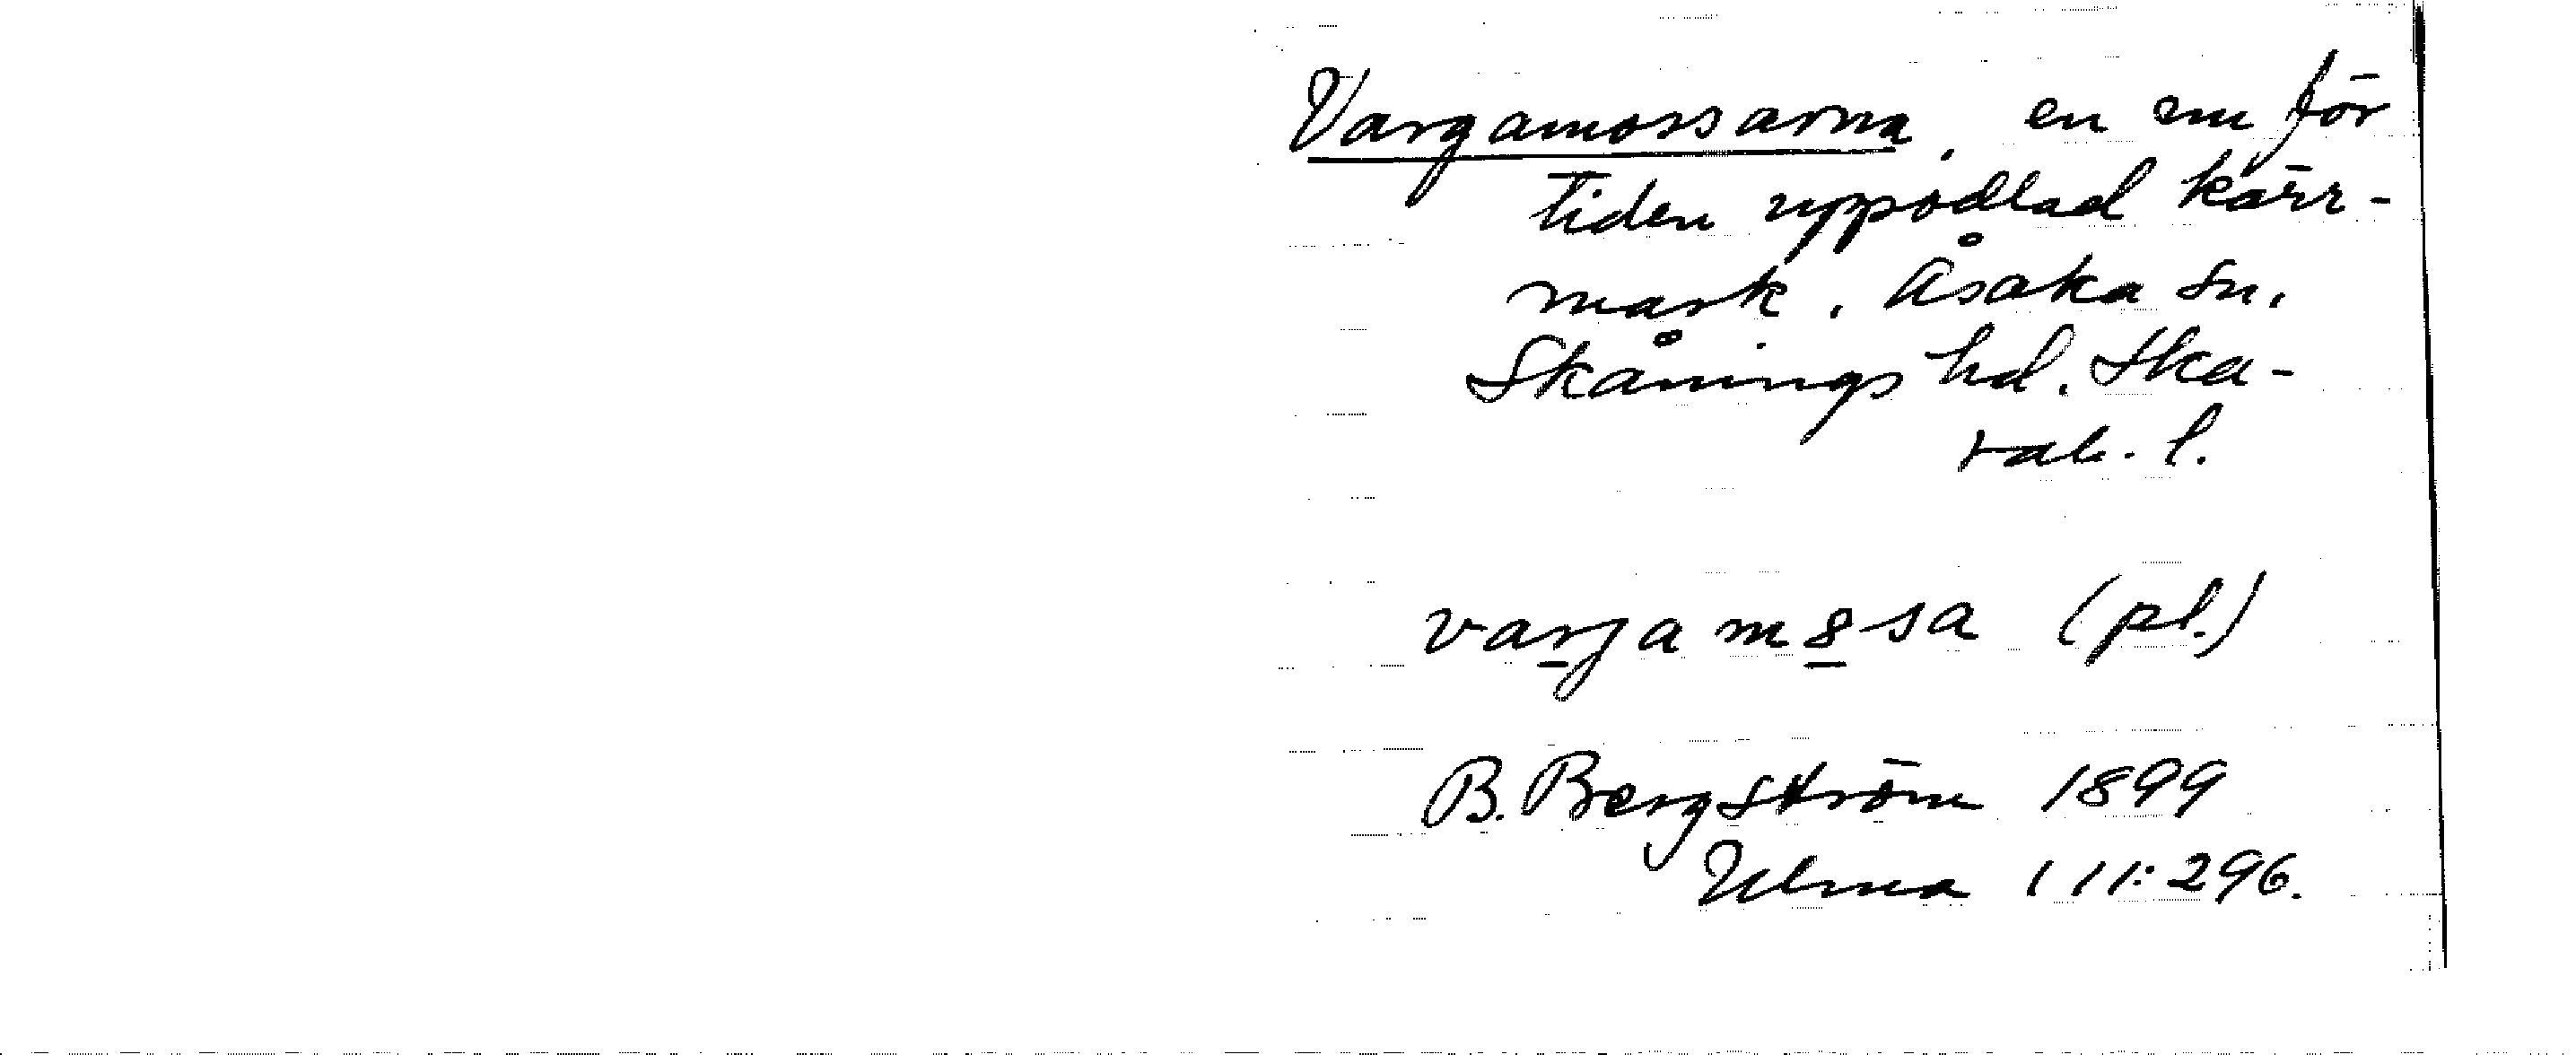 Vargamossarna, en nu för
tiden uppodlad kärr-
mark. Åsaka sn.
Skånings hd. Ska-
rab. l.
varjamɞsa (pl.)
B. Bergström 1899
Ulma 111:296.